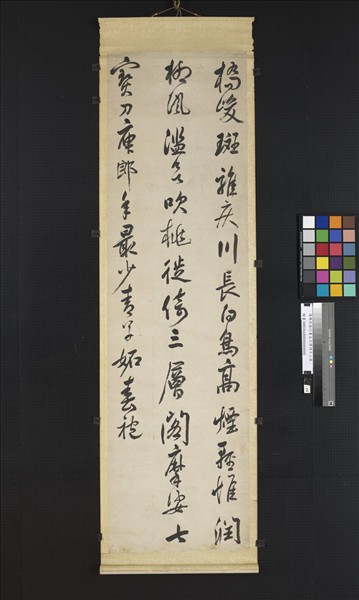 橋峻斑騅疾川長白鳥高煙輕惟潤
柳風濫欲吹桃徙倚三層閣摩娑七
寶刀庾郎年最少青草妬春袍